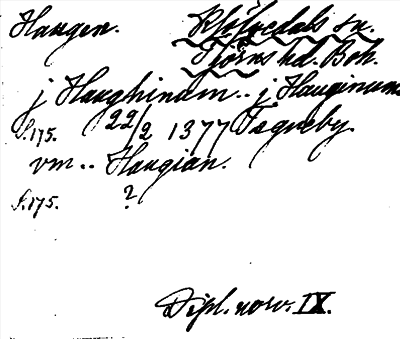 Haugen. Klöfvedals sn.
Tjörns hd. Boh.
j Haughinum.. j Hauginum
S.175. 22/2 1377 Tegneby.
vm.. Haugian.
S.175. ?
Dipl. norv. IX.